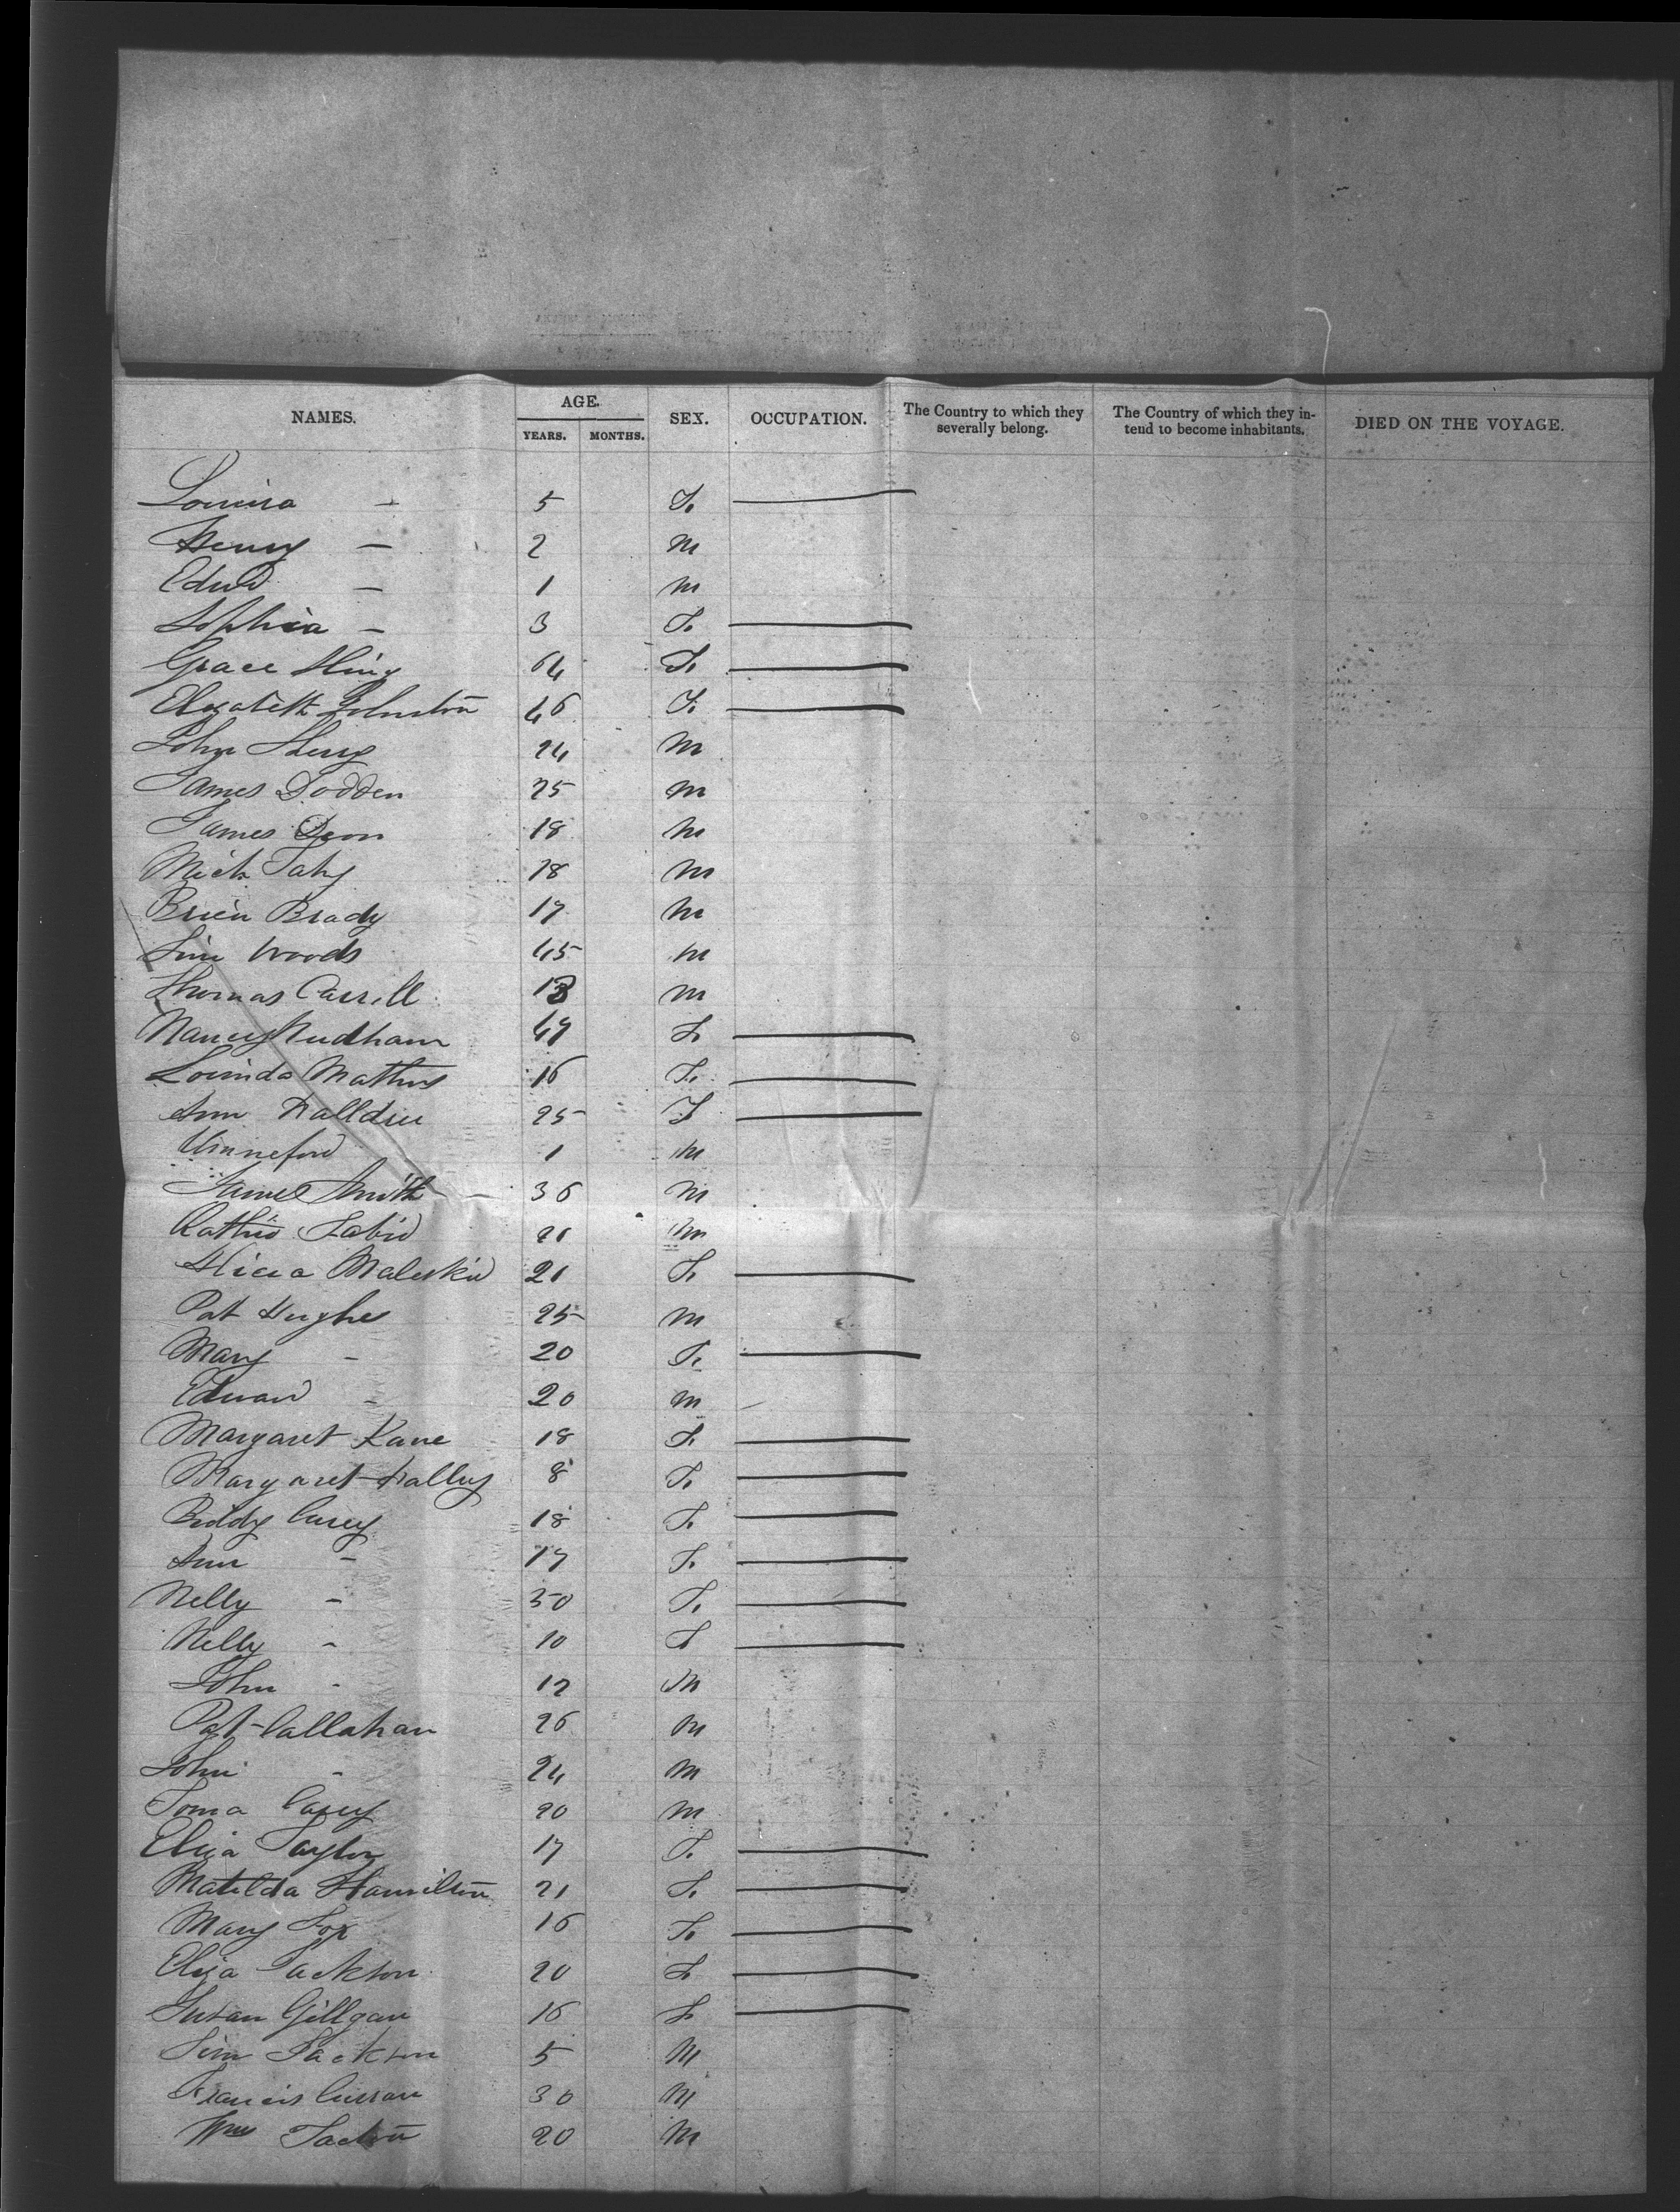 NAMES. AGE. SEX. OCCUPATION. The Country to which they severally belong. The Country of which they intend to become inhabitants. DIED ON THE VOYAGE.
YEARS. MONTHS.
Louisa - 5 F. —
Henry - 2 M
Edwd - 1 M
Sophia - 3 F. —
Grace 64 F. —
Elizabeth Johnston 46 F. —
John 24 M
James Dodden 25 M
James 18 M
Mich 18 M
Brien Brady 17 M
Jim Woods 45 M
Thomas Carrill 18 M
Nancy Nudham 47 F. —
Lorinda Mathews 16 F. —
Ann 25 F —
Winneford 1 M
James Smith - 36 M
21 M
21 F. —
Pat Hughes 25 M
Mary - 20 F. —
Edward - 20 M
Margaret Kane 18 F. —
Margaret 8 F. —
Biddy Casey 18 F. —
Ann - 17 F. —
Nelly - 30 F. —
Nelly - 10 F —
John - 12 M
Pat Callahan 26 M
John - 24 M
Toma Casey 20 M
Eliza Taylor 17 F. —
Matilda Hamilton 21 F. —
Mary Fox 16 F. —
Eliza Jackson 20 F. —
Susan Gillgan 16 F. —
Jim Jackson 5 M
Francis Curran 30 M
Wm 20 M